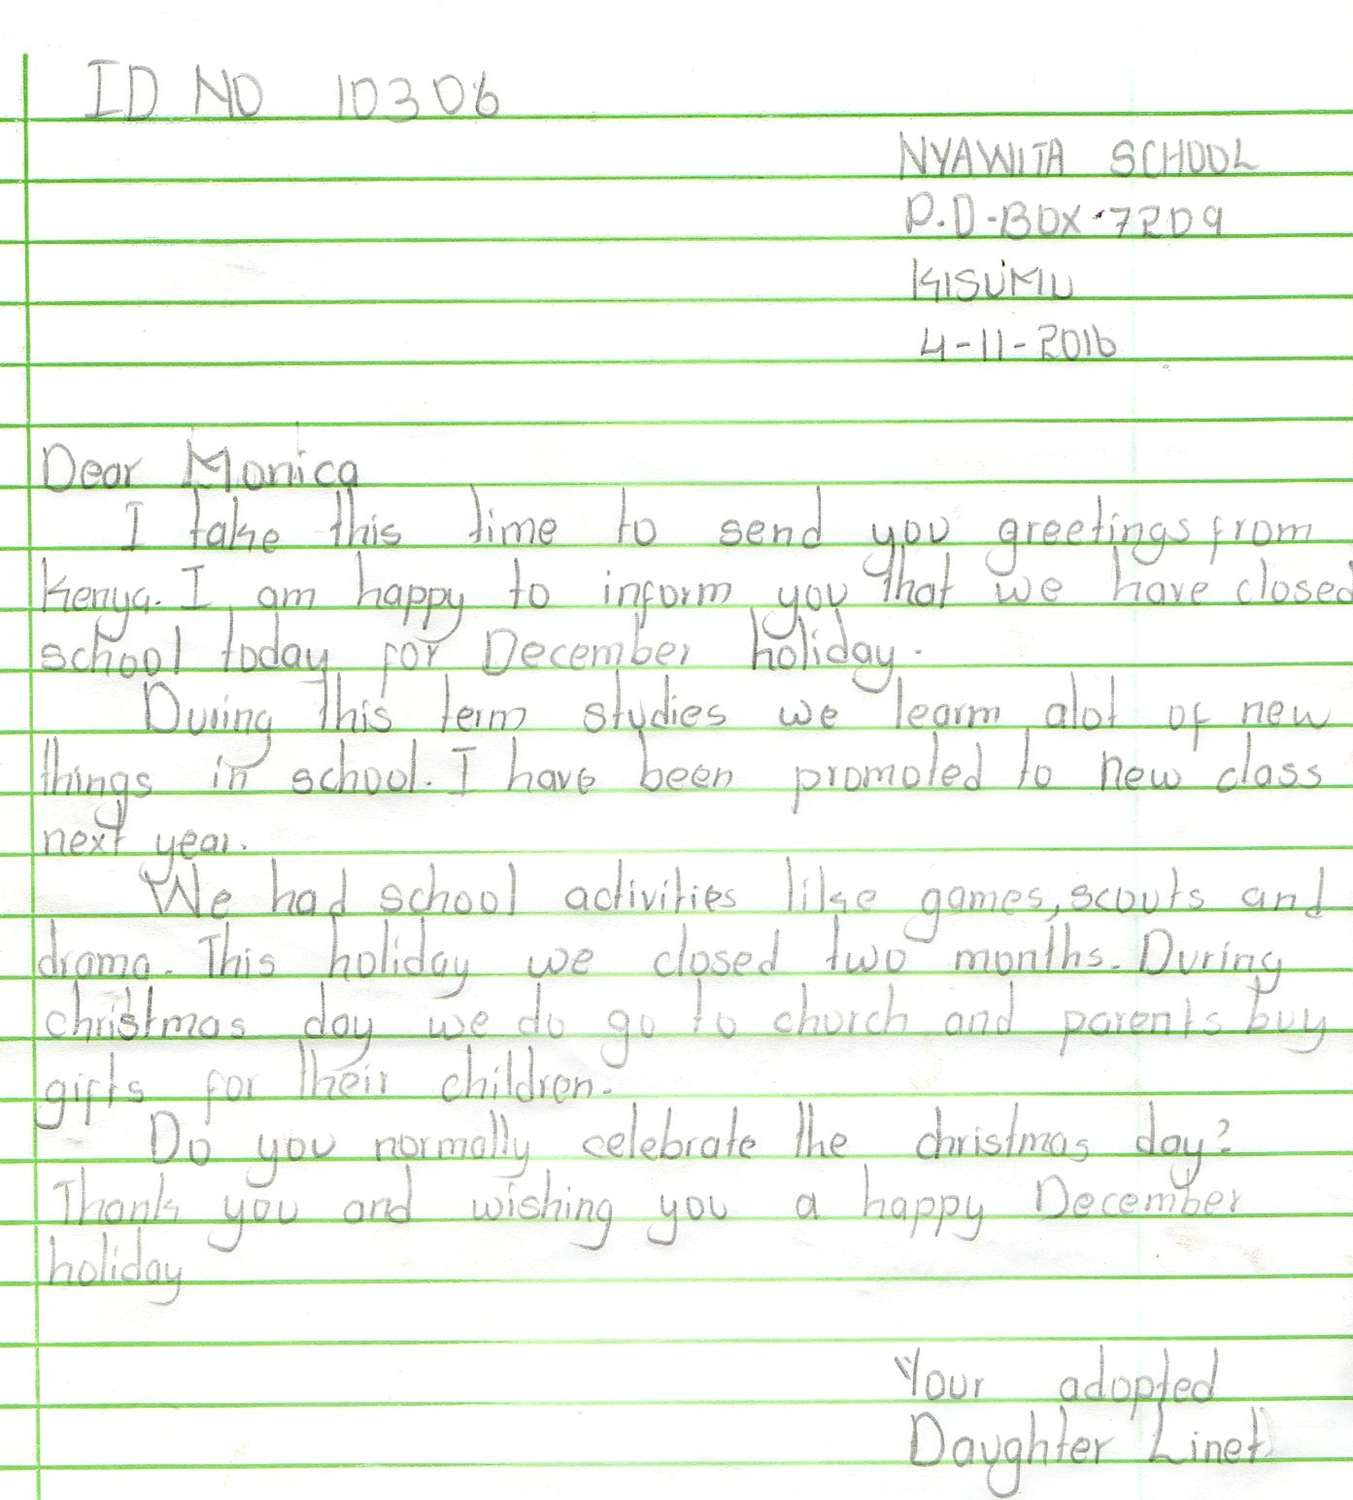 ID NO 10306
NYAWITA SCHOOL
P.O-BOX-7209
KISUMU
4-11-2016
Dear Monica
I take this time to send you greetings from
Kenya. I am happy to inform you that we have closed
school today for December holiday.
During this term studies we learm alot of new
things in school. I have been promoted to new class
next year.
We had school activities like games, scouts and
drama. This holiday we closed two months. During
christmas day we do go to church and parents buy
gifts for their children.
Do you normally celebrate the christmas day?
Thank you and wishing you a happy December
holiday
Your adopted
Daughter Linet